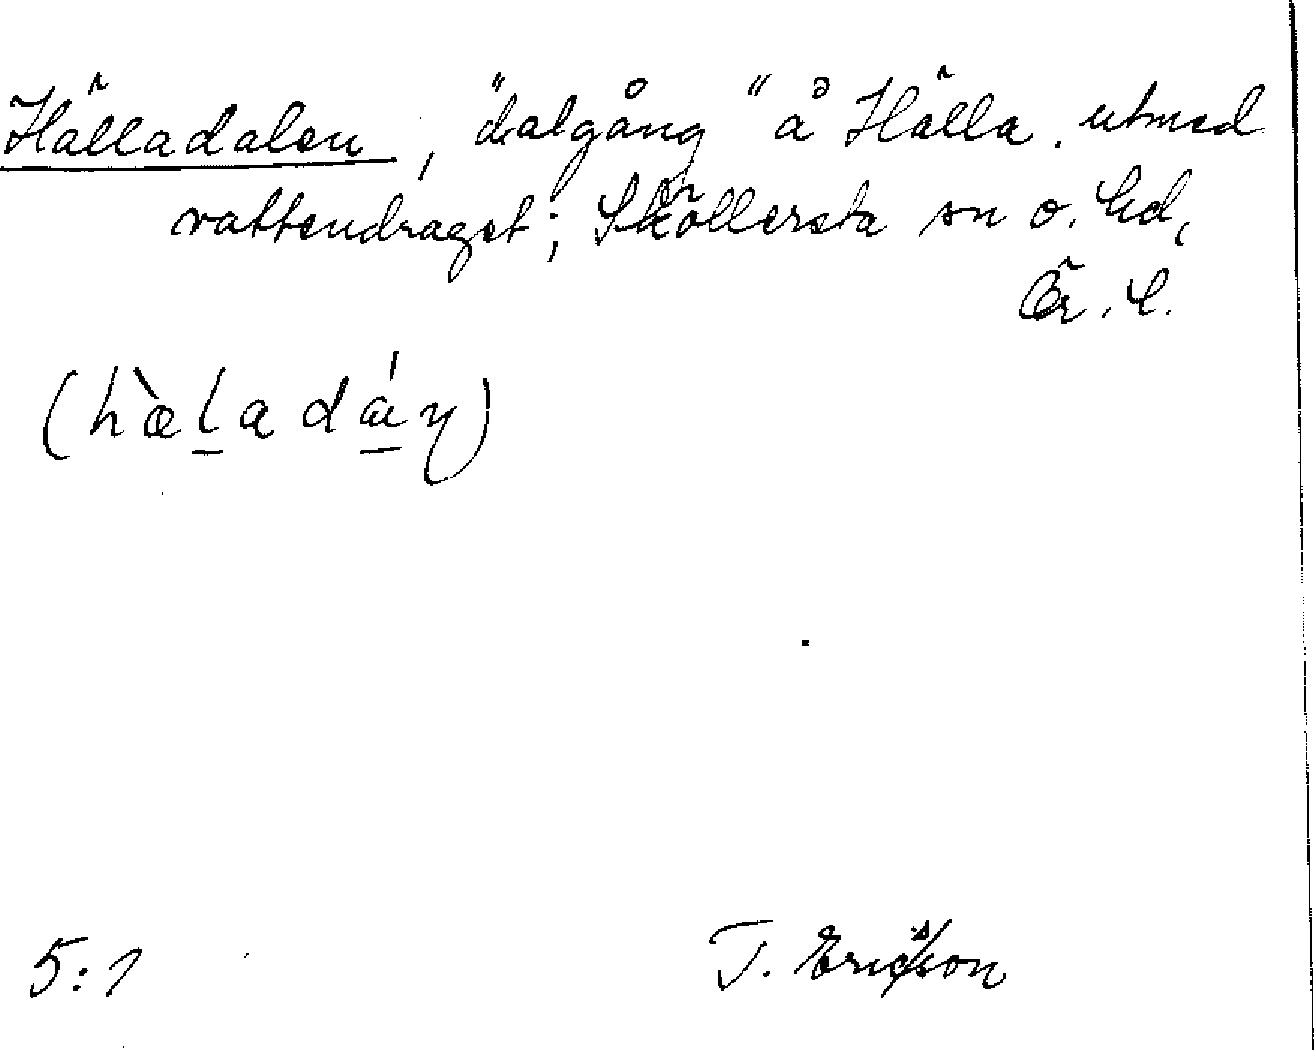 Hälladalen, "dalgång" å Hälla. utmed
vattendraget; Sköllersta sn o. hd,
Ör. l.
(hæ̀l̲adá̲n)
5:1
T. Ericsson